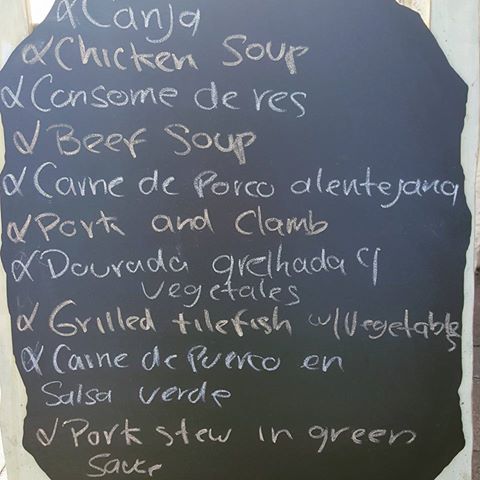 Canja
Chicken Soup
Consome de res
Beef Soup
Carne de Porco alentejana
Pork and Clamb
Dourada grelhada c/
vegetales
Grilled tilefish w/Vegetables
Carne de Puerco en
Salsa verde
Pork stew in green
Sauce